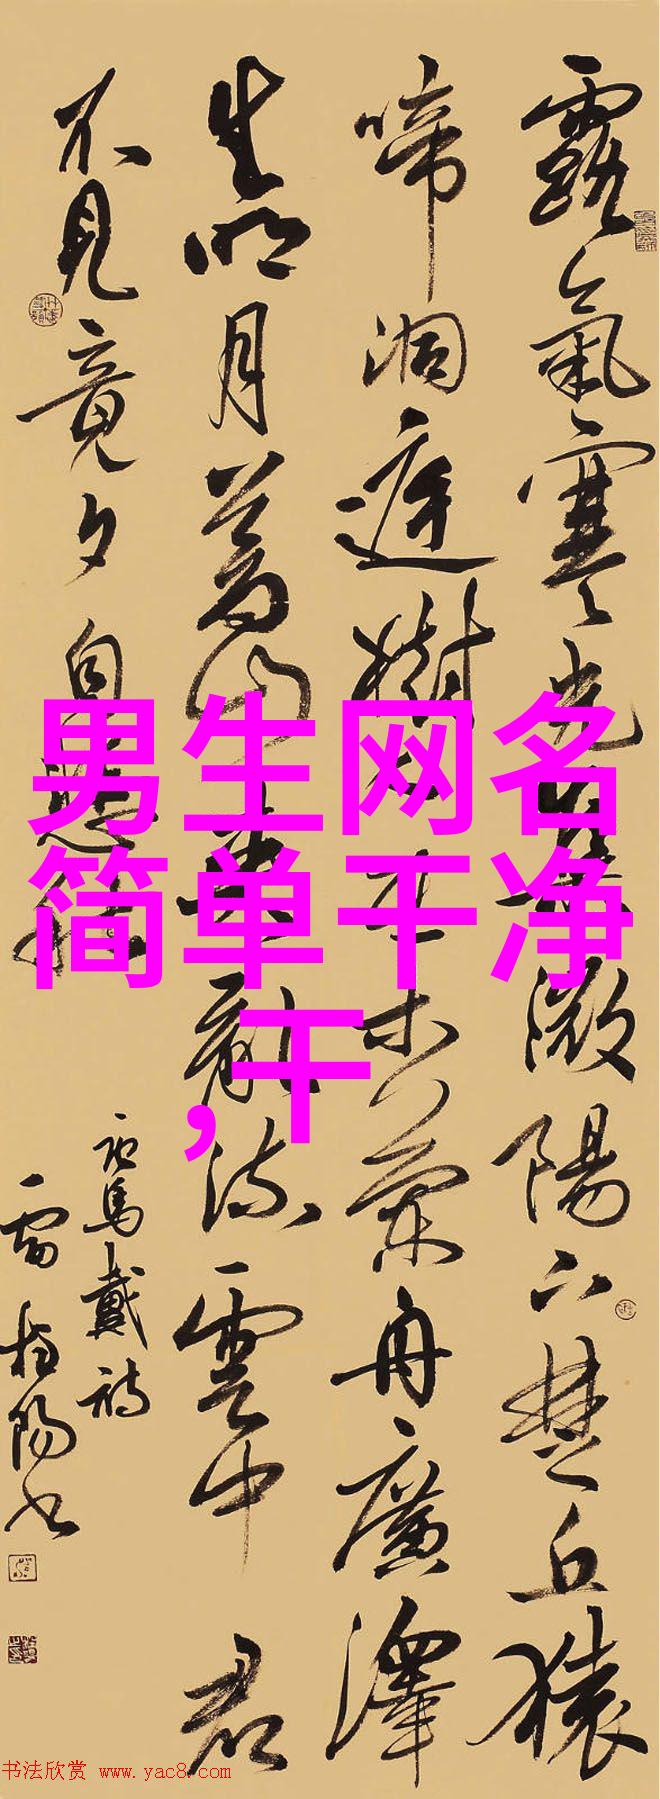 露氣寒光集微陽下楚丘猿
啼洞庭樹人在木蘭舟廣澤
生明月蒼山夾亂流雲中君
不見竟夕自悲秋
唐馬戴詩
雷陽書
男生网名
简单干净
,干
书法欣赏 www.yac8.com